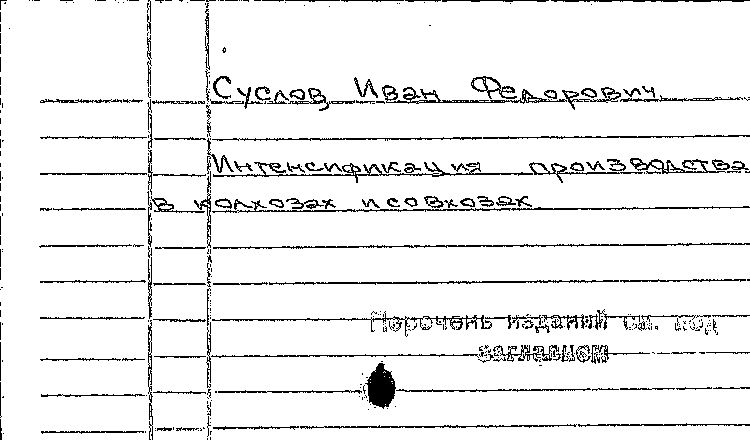 Суслов Иван Федорович.
Интенсификация производства
в колхозах и совхозах
Перечень изданий см. под
заглавием